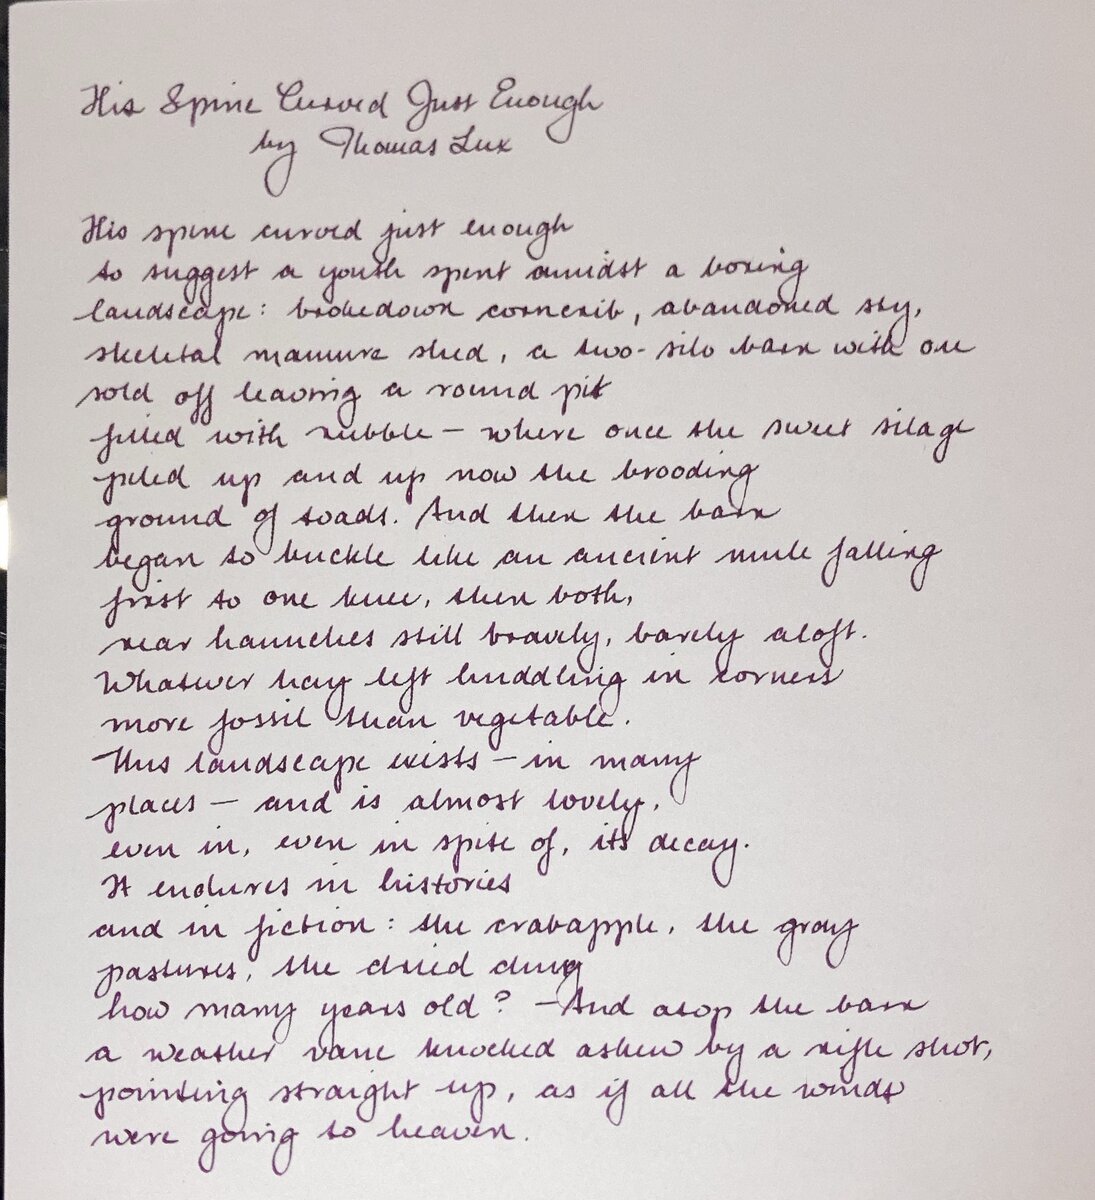 His Spine Curved Just Enough
by Thomas Lux
His spine curved just enough
to suggest a youth spent amidst a boring
landscape: brokedown corncrib, abandoned sty,
skeletal manure shed, a two-silo barn with one
sold off leaving a round pit
filled with rubble — where once the sweet silage
piled up and up now the brooding
ground of toads. And then the barn
began to buckle like an ancient mule falling
first to one knee, then both,
rear haunches still bravely, barely aloft.
Whatever hay left huddling in corners
more fossil than vegetable.
This landscape exists — in many
places — and is almost lovely,
even in, even in spite of, its decay.
It endures in histories
and in fiction: the crabapple, the gray
pastures, the dried dung
how many years old? — And atop the barn
a weather vane knocked askew by a rifle shot,
pointing straight up, as if all the winds
were going to heaven.